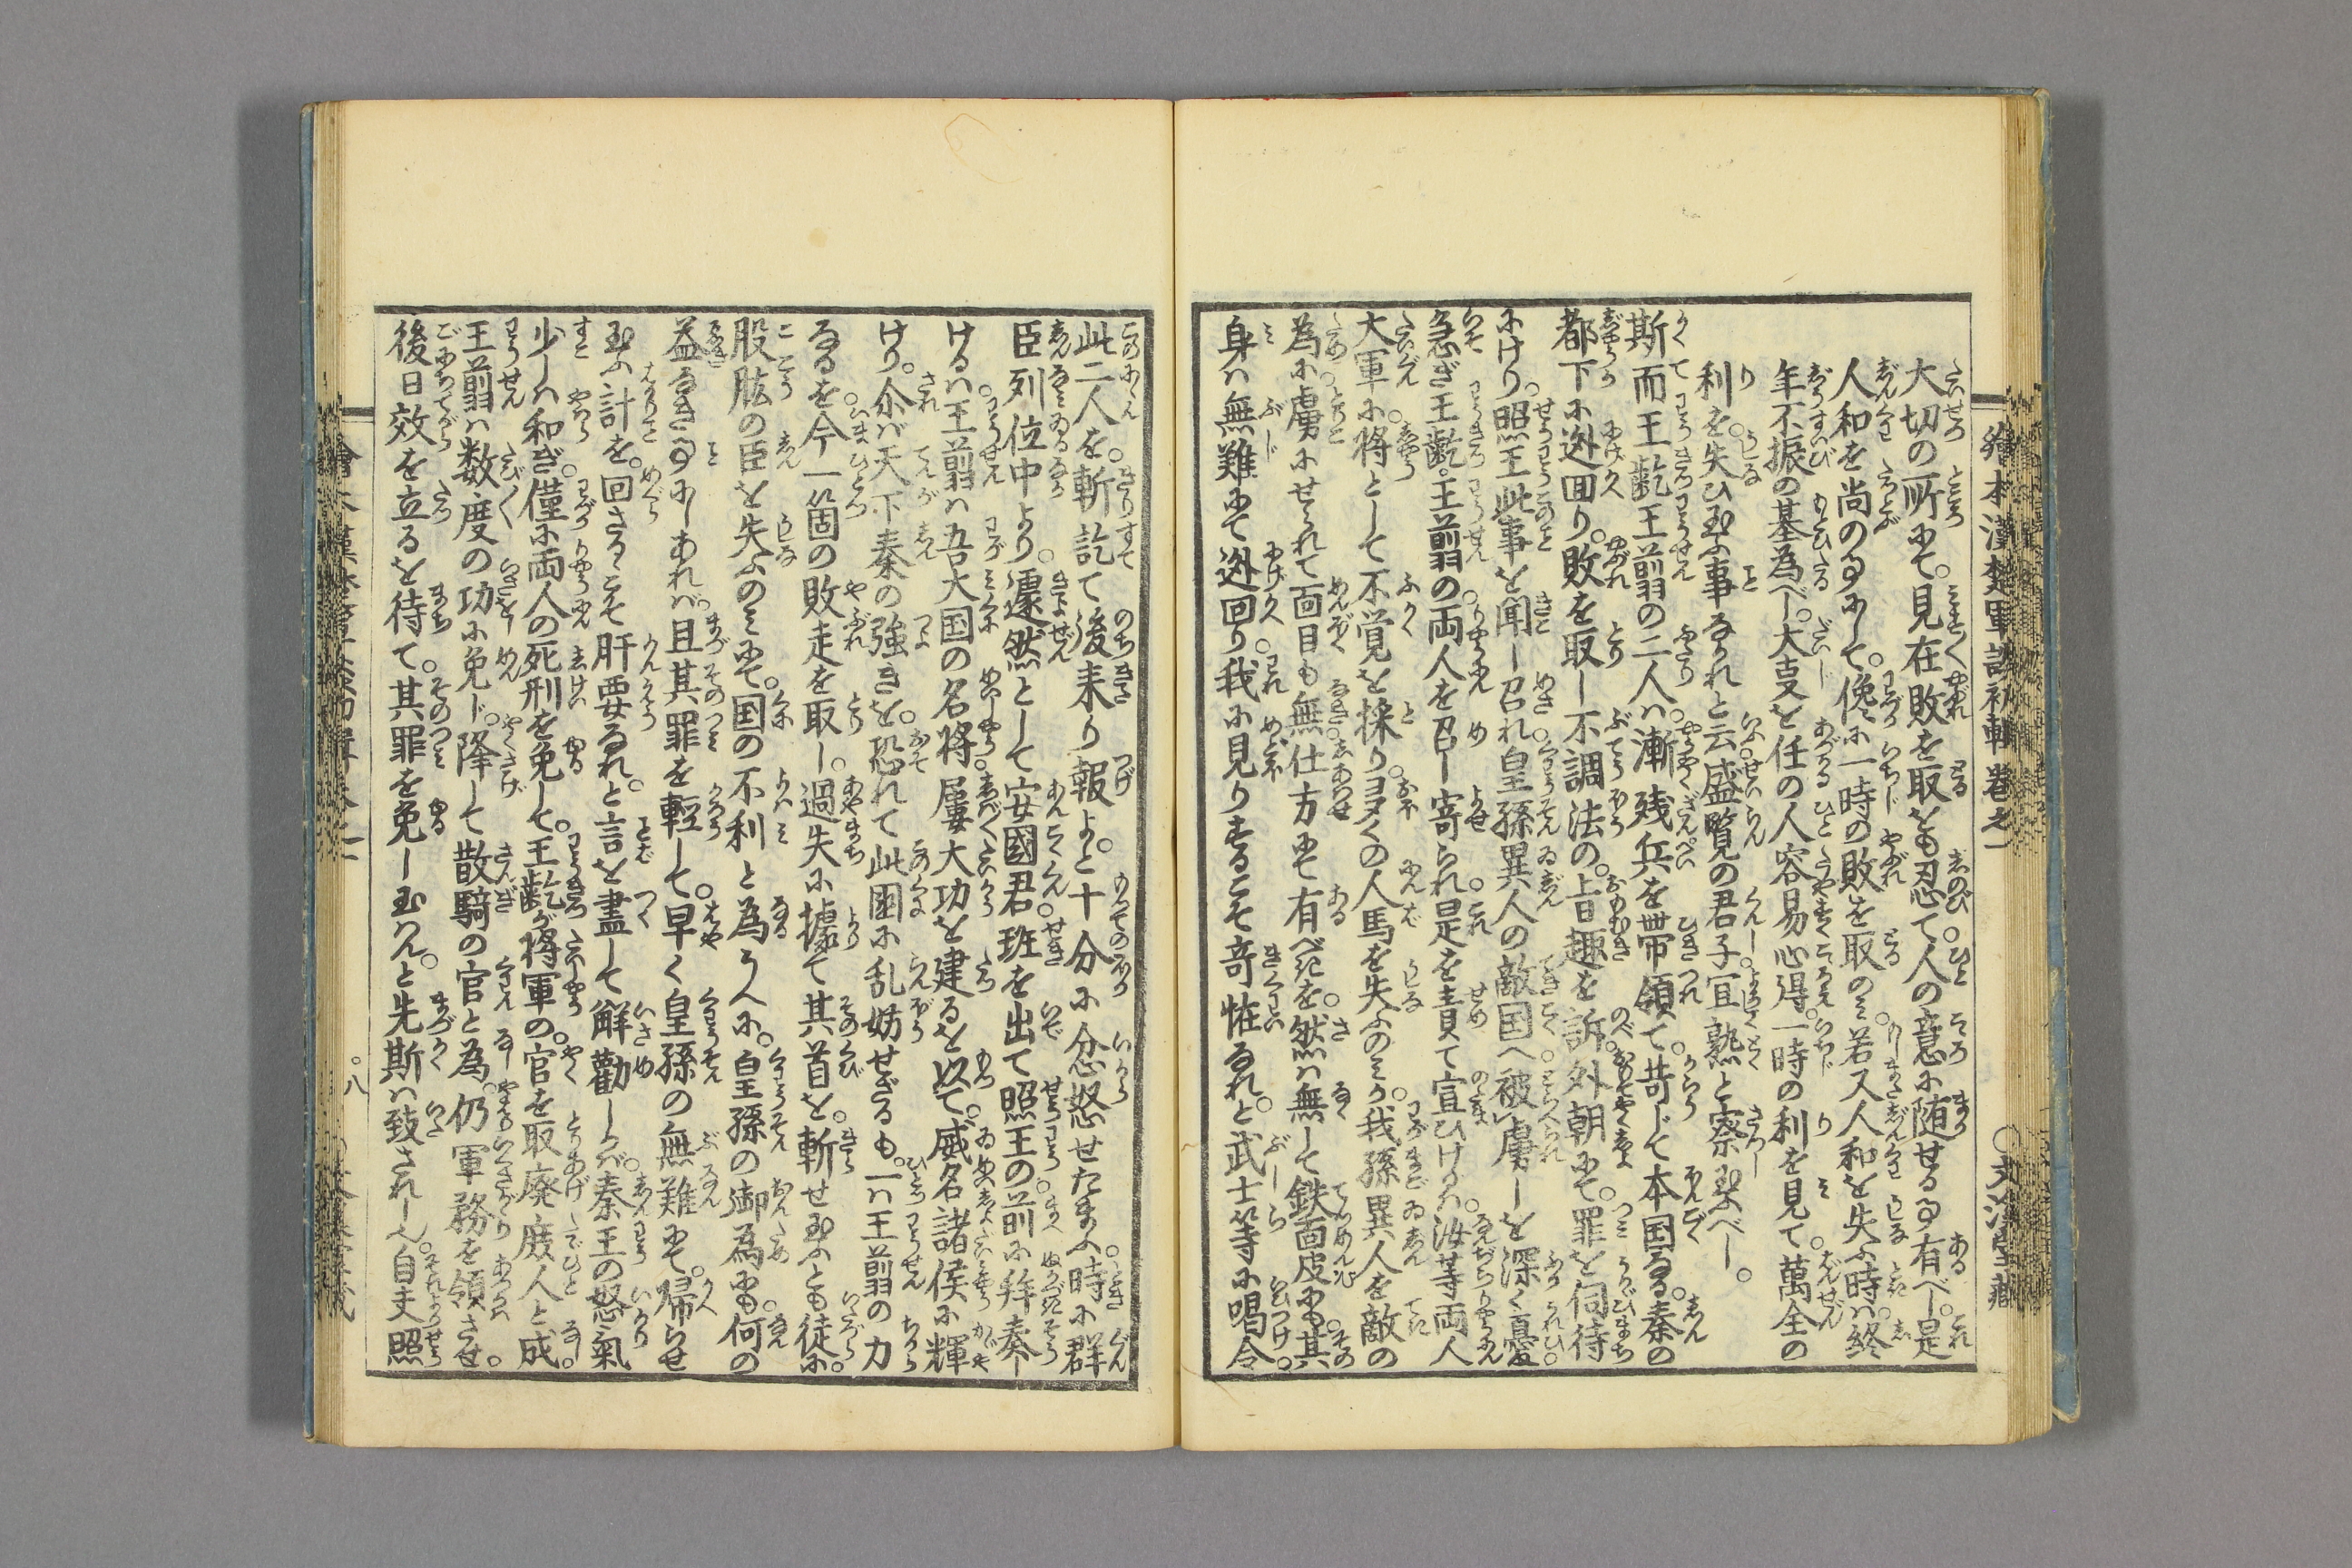 繪本漢楚軍談初輯巻之一
大切の所にて。見在敗を取とも忍て。人の意に随せる事有べし。是
人和を尚の事にして。僅に一時の敗を取のミ。若又人和を失ふ時ハ。終
年不振の基為べし。大事を任の人容易心得。一時の利を見て。萬全の
利を。失ひ玉ふ事なかれと云。盛覧の君子宜熟と察玉ふべし。
斯而王齕王翦の二人ハ。漸残兵を帯領て。苛じて本国なる。秦の
都下に迯回り。敗を取し不調法の。旨趣を訴。外朝にて。罪を伺待
にけり。照王此事を聞し召れ。皇孫異人の敵国へ。被虜しを深く憂。
急ぎ王齕。王翦の。両人を召し寄られ。是を責て宣ひけるハ。汝等両人
大軍に。将として不覚を採り。ヨタくの人馬を失ふのミか。我孫異人を敵の
為に。虜にせられて面目も無。仕方にて有べきを。然ハ無して鉄面皮も。其
身ハ無難にて迯回り。我に見りするこそ奇怪なれ。と武士等に唱令。
此二人を。斬訖て後来り報よ。と十分に忿怒せたまふ。時に群
臣列位中より。遽然として安國君。班を出て照王の。前に奔奏し
ける。ハ王翦ハ吾大国の名将。屢大功を建るを以て。威名諸侯に輝
けり。尒バ天下秦の強きを。恐れて此国に乱妨せざるも。一ハ王翦の力
なるを。今一箇の敗走を取し。過失に據て其首を。斬せ玉ふとも徒に。
股肱の臣を失ふのミにて。国の不利と為うへに。皇孫の御為にも。何の
益なき事にしあれバ。且其罪を軽して。早く皇孫の無難にて。帰らせ
玉ふ計を。回さるこそ肝要なれ。と言を盡して觧勸しかバ。秦王の怒氣
少しハ和ぎ。僅に両人の死刑を免して。王齕が将軍の。官を取廃庶人と成。
王翦ハ数度の功に免じ。降して散騎の官と為。仍軍務を領させ。
後日效を立るを待て。其罪を免し玉ハん。と先斯ハ致されしん。自夫照
八